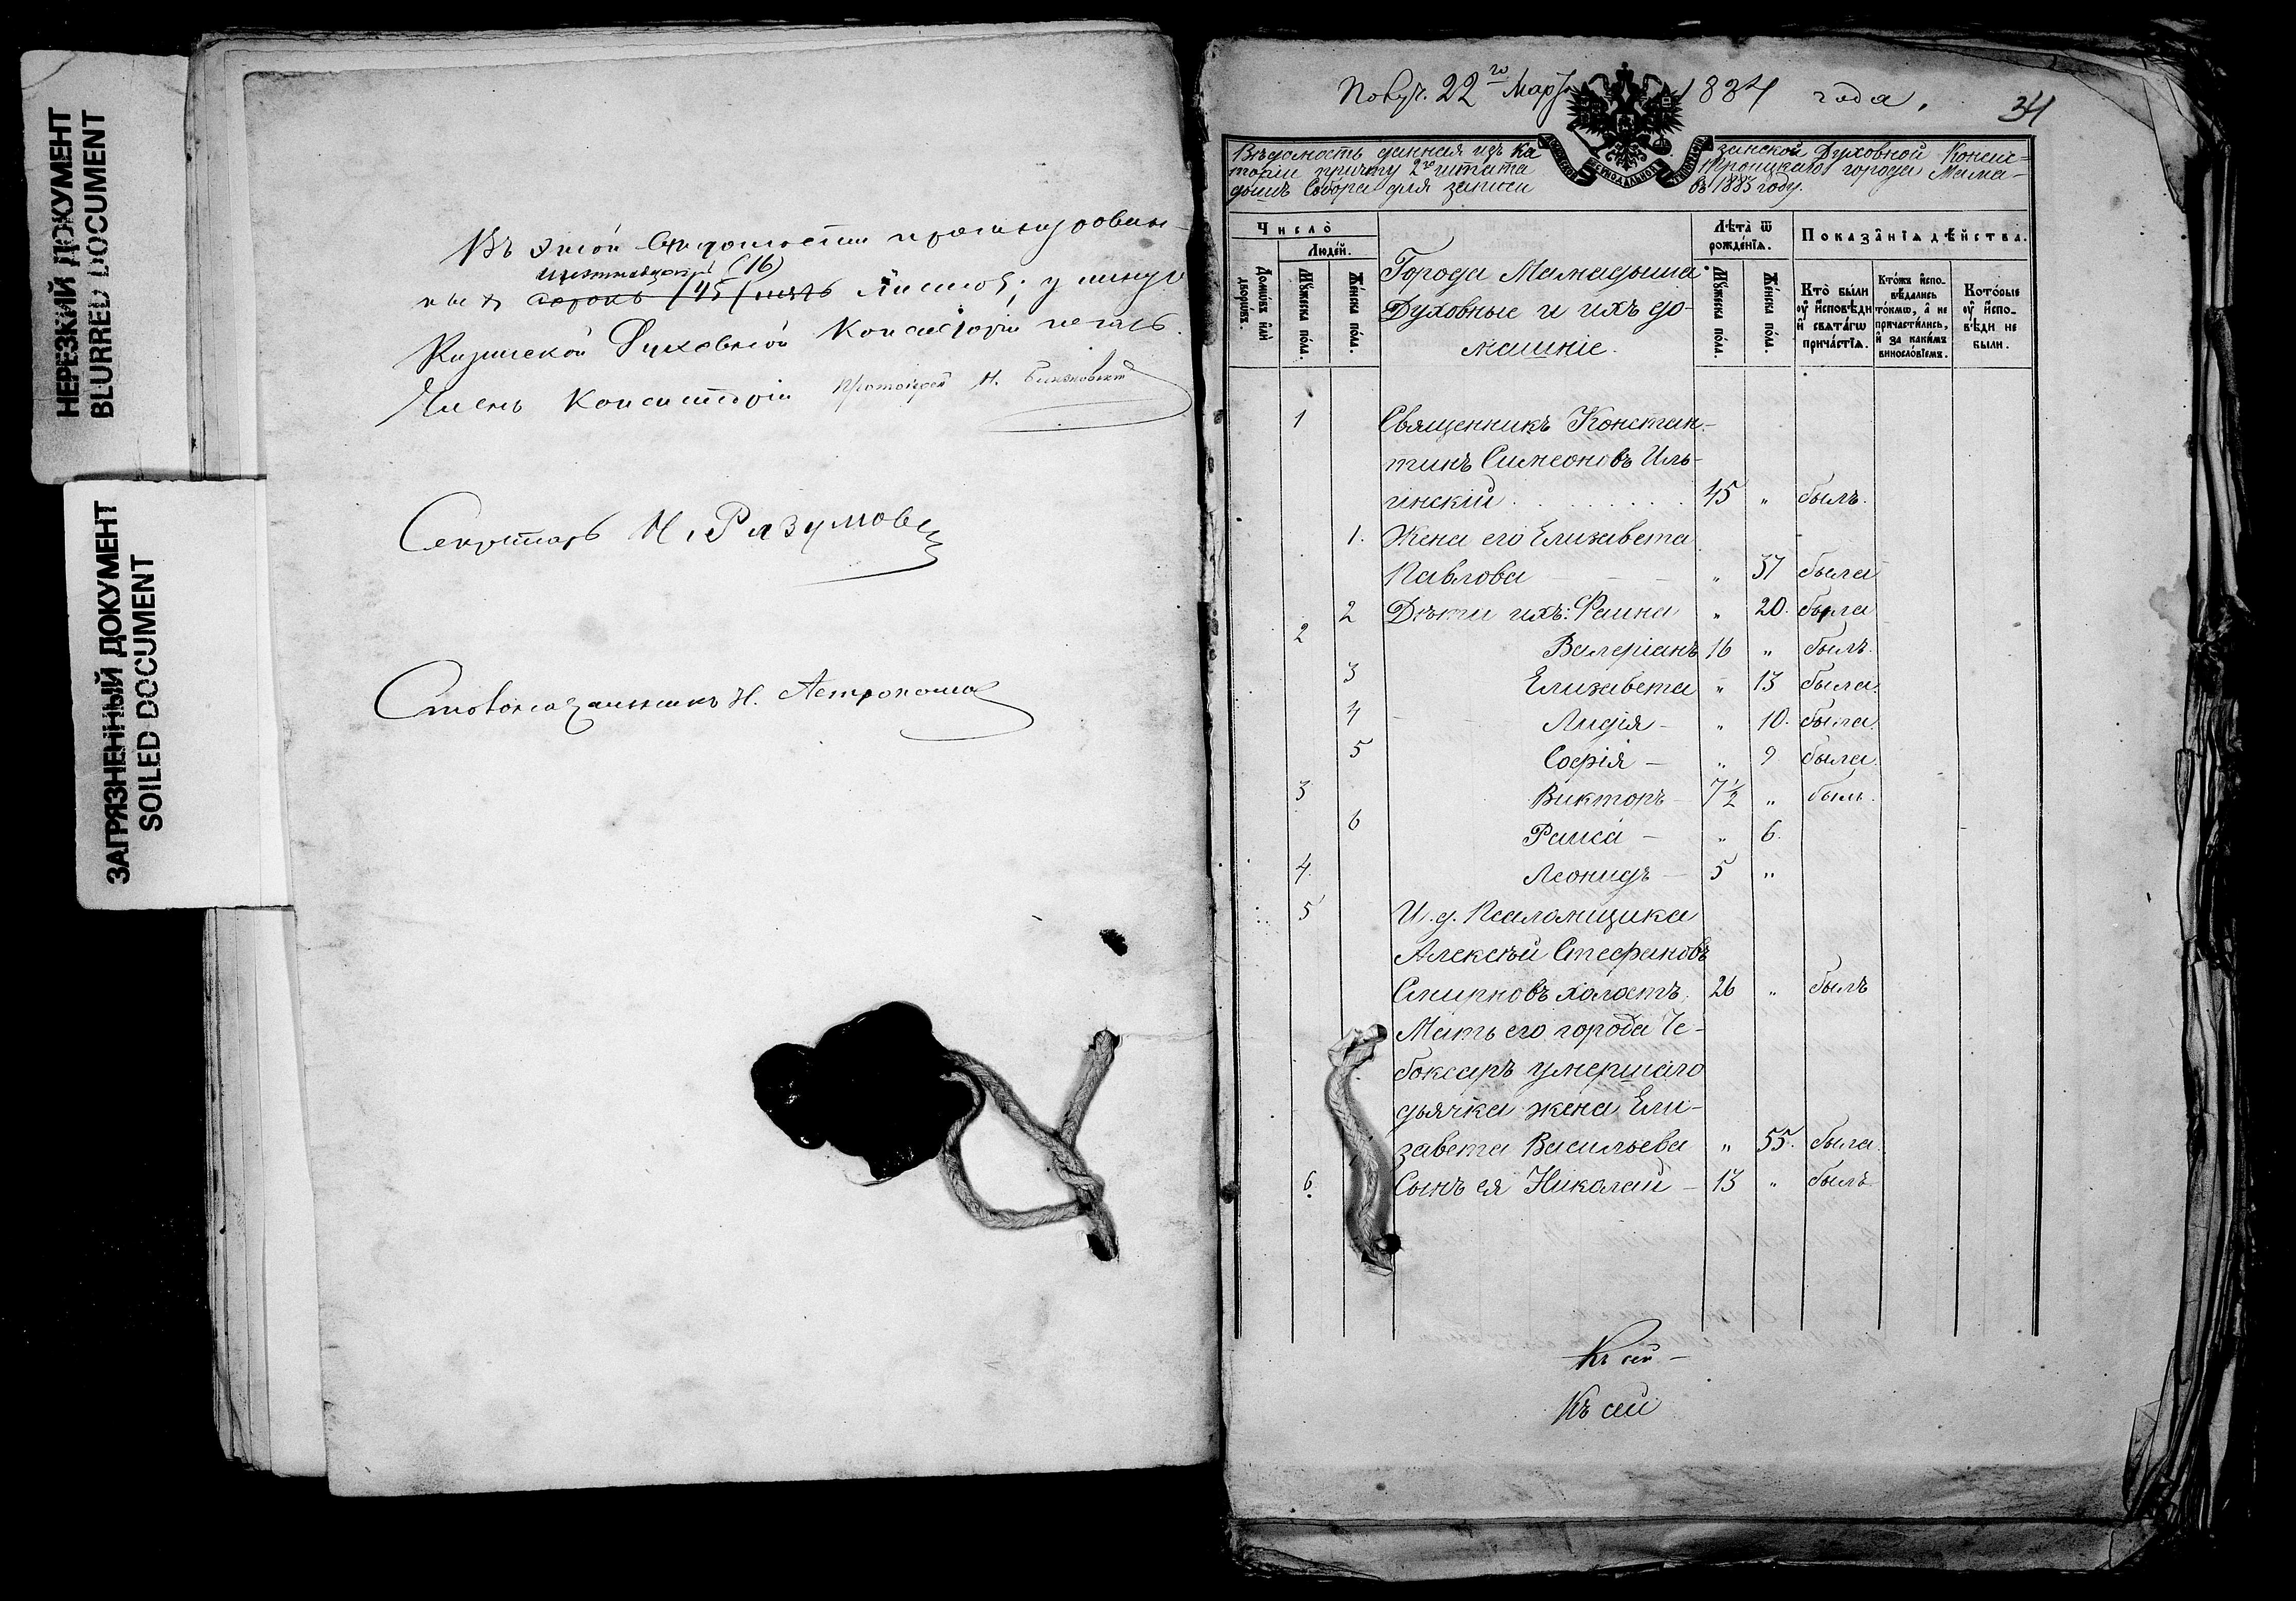 НЕРЕЗКИЙ ДОКУМЕНТ
BLURRED DOCUMENT
ЗАГРЯЗНЕННЫЙ ДОКУМЕНТ
SOILED DOCUMENT
Въ этой вѣдомости пронумерован-
(16)
ныхъ сорокъ (45) пять листовъ; у шнура
Казанской Духовной Консисторіи печать.
Членъ Консисторіи Протоіерей
Секретарь Н. Разумовъ
Столоначальникъ Н. Астрономовъ
Получ. 22го Марта 1884 года.
34
Вѣдомость данная изъ Казанской Духовной Консис-
торіи причту 2го штата Троицкаго города Мама-
дышъ Собора для записи въ 1883 году.
Число̀
Людей.
Домѡ́въ и҆лѝ дворѡ́въ.
Мꙋ́жеска по́ла.
Же́нска по́ла.
Города Мамадыша
Духовные и ихъ до-
машніе.
Лѣта̀ ѿ рожде́нїѧ.
Мꙋ́жеска по́ла.
Же́нска по́ла.
Показа̑нїѧ дѣ́йства.
Кто̀ бы́ли ᲂу҆ и҆сповѣ́ди и҆ свѧта́гѡ прича́стїѧ.
Кто́жъ и҆спо-вѣ́дались то́кмѡ, а҆ не причасти́лись, и҆ за каки́мъ винослѡ́вїемъ.
Кото́рые ᲂу҆ и҆спо-вѣ́ди не бы́ли.
1 Священникъ Констан-
тинъ Симеоновъ Иль-
инскій 45 " былъ.
1. Жена его Елизавета
Павлова " 37 была
2 Дѣти ихъ: Фаина " 20. была
2 Валеріанъ 16 " былъ.
3 Елизавета " 13 была.
4 Лидія " 10. была.
5 Софія " 9 была.
3 Викторъ 7½ " былъ.
6 Раиса " 6.
4. Леонидъ 5 "
5 И. д. Псаломщика
Алексѣй Стефановъ
Смирновъ холостъ, 26 " былъ
Мать его города Че-
боксаръ умершаго
дьячка жена Ели-
завета Васильева " 55. была.
6. Сынъ ея Николай 13 " былъ
Къ сей
Къ сей